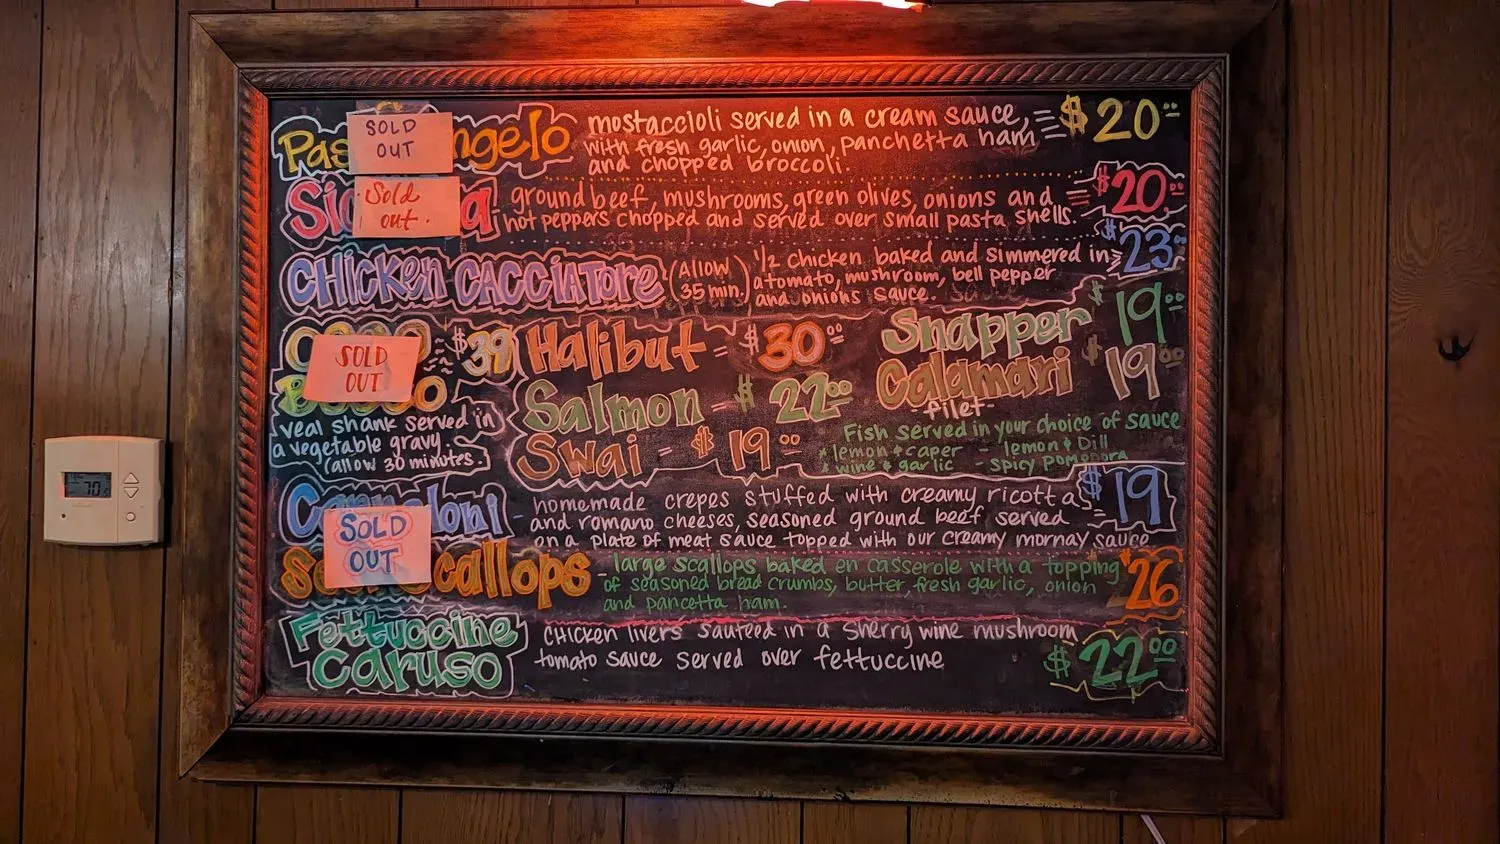 SOLD
OUT
ngelo
mostaccioli served in a cream sauce,
with fresh garlic, onion, panchetta ham
and chopped broccoli.
$20
Sold
out.
ground beef, mushrooms, green olives, onions and
hot peppers chopped and served over small pasta shells.
$20.00
CHicken CACCiATORe (Allow
35 min.)
1/2 chicken baked and simmered in
a tomato, mushroom, bell pepper
and onions sauce.
$23.00
SOLD
OUT
$39
veal shank served in
a vegetable gravy.
(allow 30 minutes.
Halibut = $30.00
Salmon = $22.00
Swai = $19.00
Snapper $19.00
Calamari $19.00
-filet-
Fish served in your choice of sauce
* lemon & caper - lemon & Dill
* wine & garlic - spicy pomodora
SOLD
OUT
loni
homemade crepes stuffed with creamy ricotta
and romano cheeses, seasoned ground beef served
on a plate of meat sauce topped with our creamy mornay sauce
$19
callops
- large scallops baked en casserole with a topping
of seasoned bread crumbs, butter, fresh garlic, onion
and pancetta ham.
$26
Fettuccine
Caruso
CHicken livers sauteed in a sherry wine mushroom
tomato sauce served over fettuccine
$22.00
70